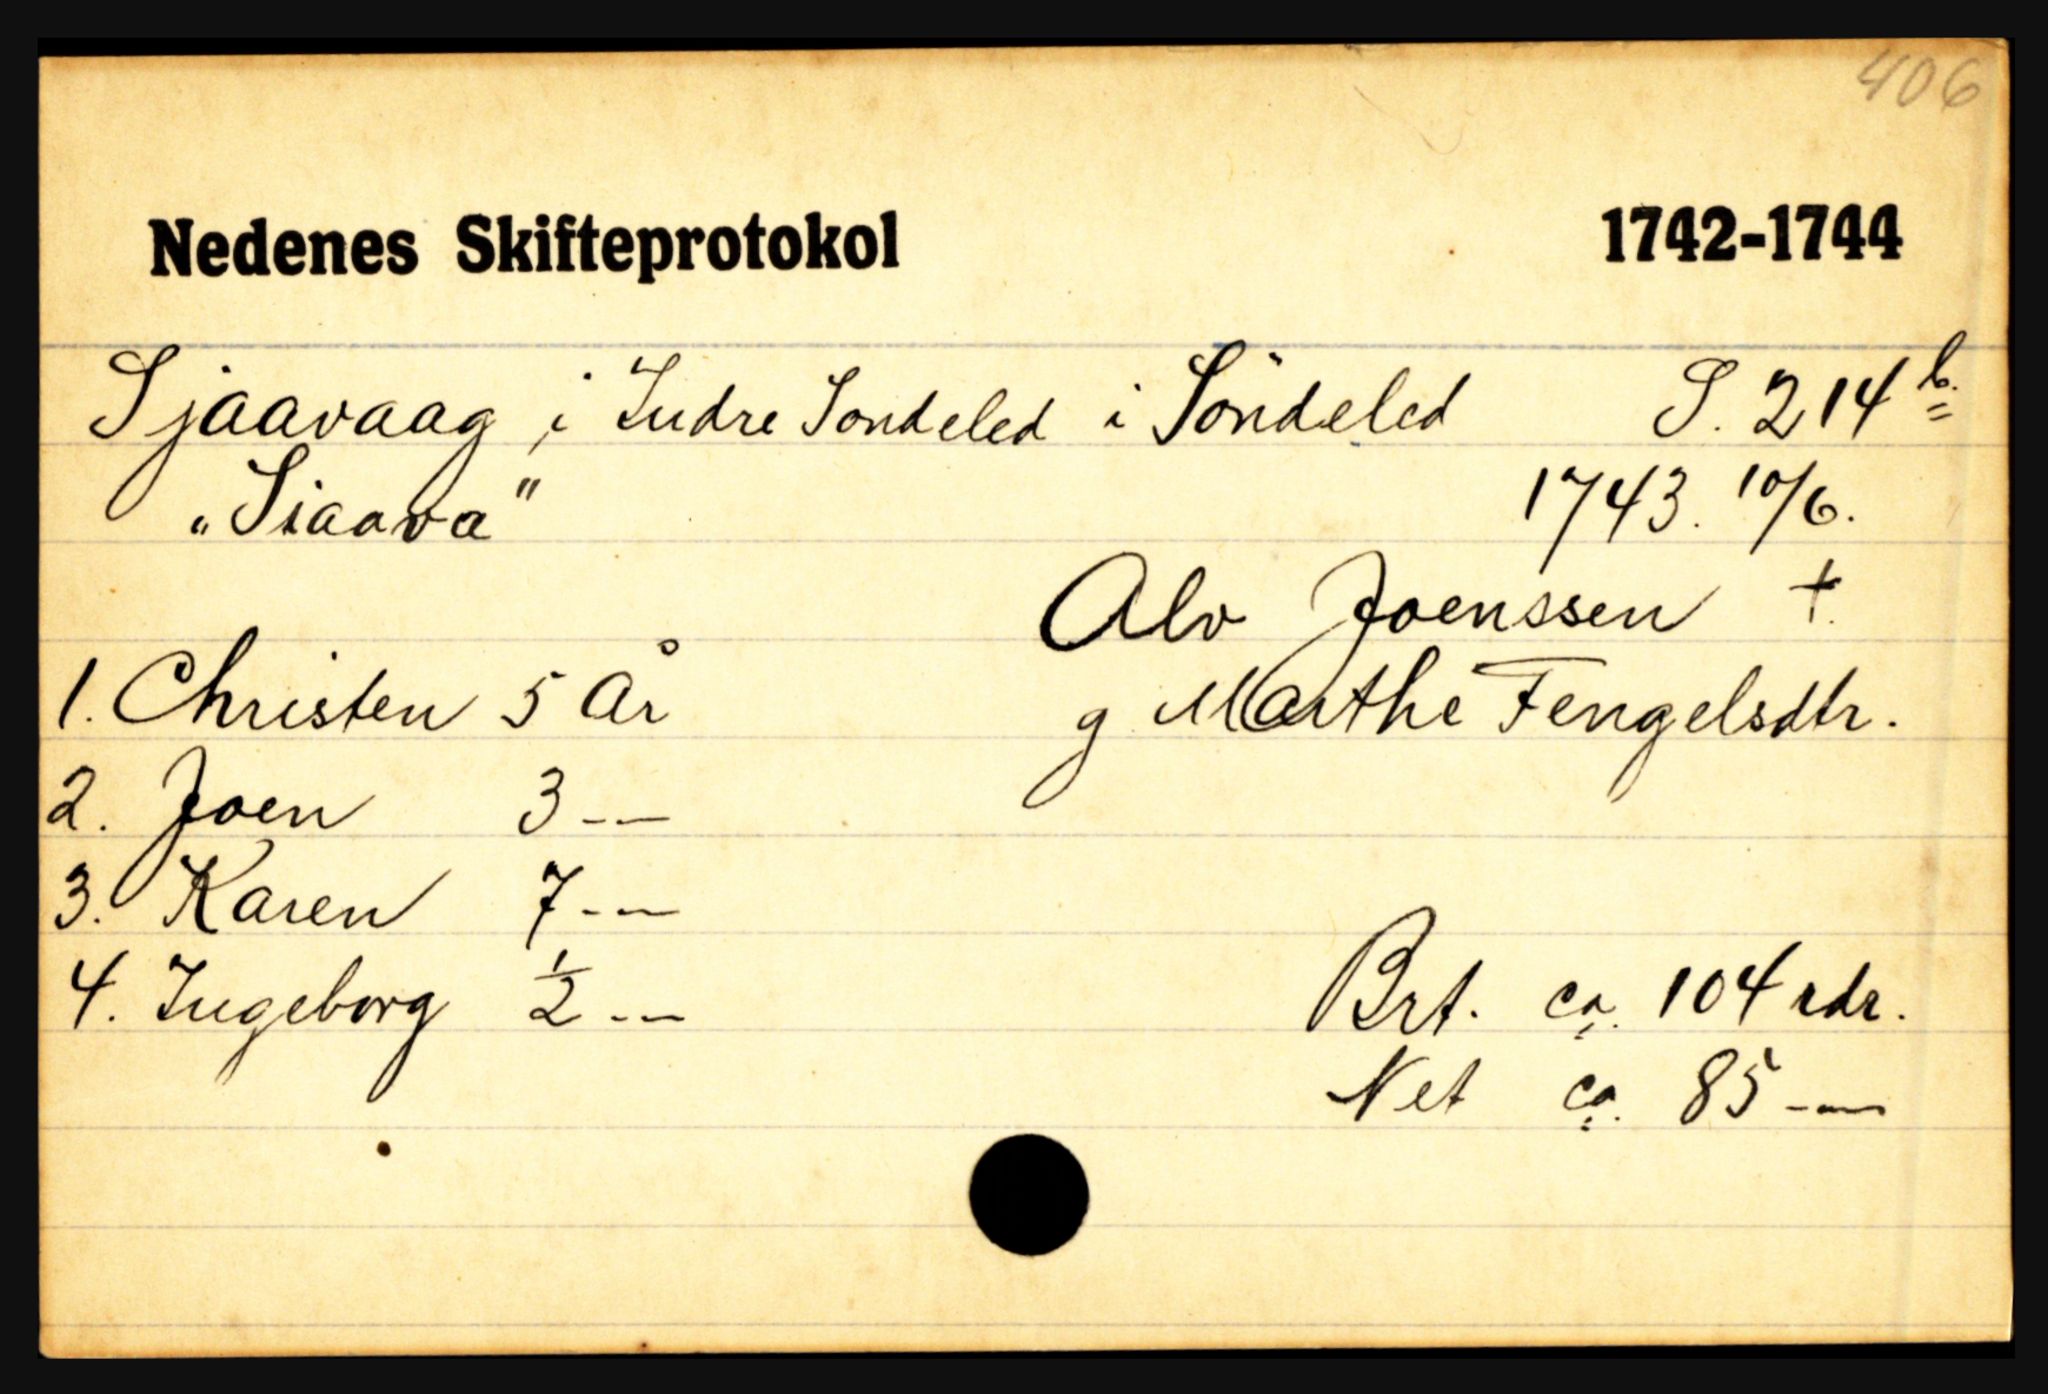 406
Nedenes Skifteprotokol 1742-1744
Sjaavaag, i Indre Sondeled i Söndeled S. 214 b.
"Siaava" 1743. 10/6.
Alv Joenssen †.
1. Christen 5 År g Marthe Fengelsdtr.
2. Joen 3 --
3. Karen 7 --
4. Ingeborg ½ -- Brt. ca. 104 rdr.
Net ca. 85 --